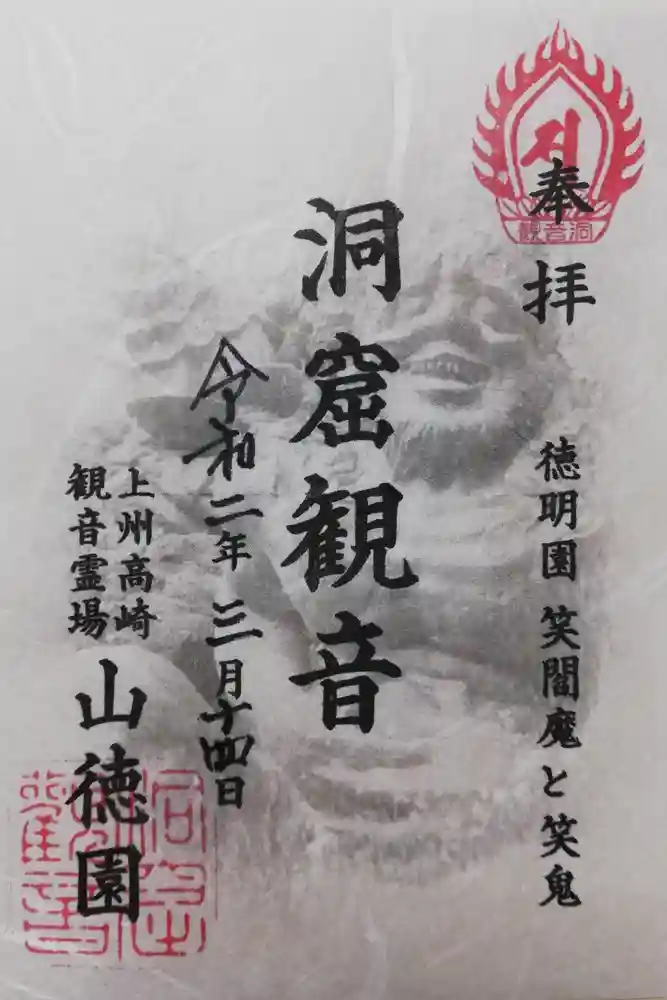 奉拝
観音洞
徳明園 笑閻魔と笑鬼
洞窟観音
令和二年三月十四日
上州高崎
観音霊場
山徳園